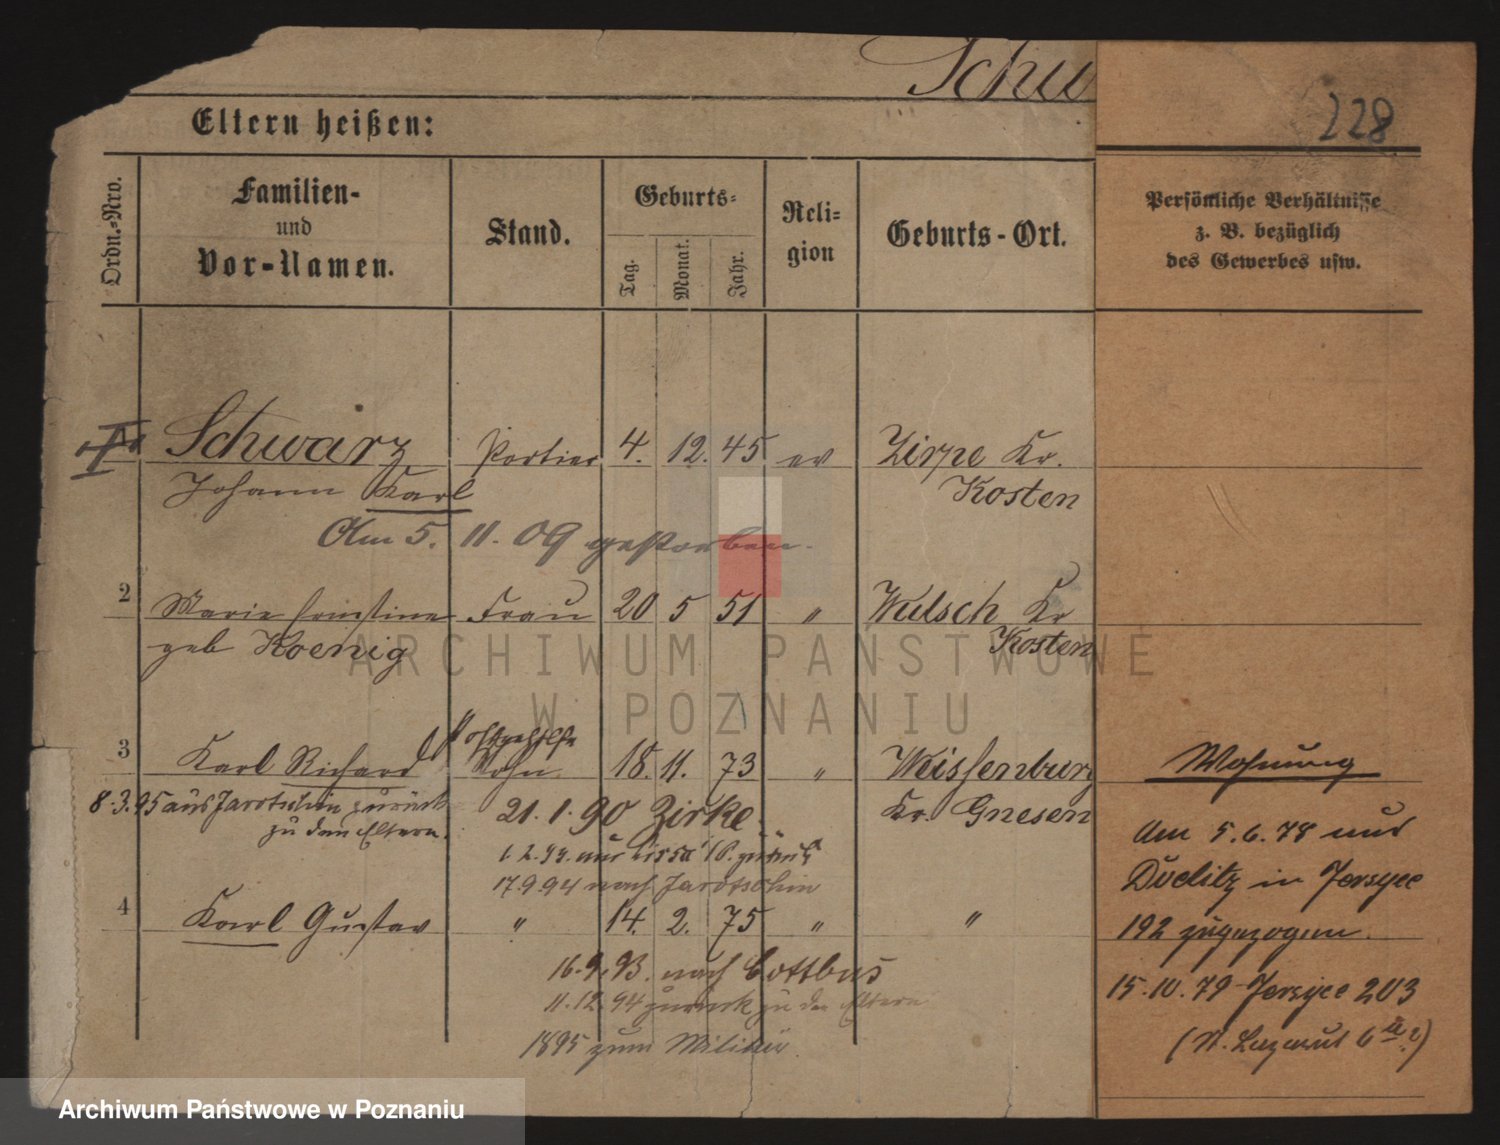 Schw
228
Eltern heißen:
Ordn.-Nro.
Familien-
und
Vor-Namen.
Stand.
Geburts-
Tag.
Monat.
Jahr.
Reli-
gion
Geburts-Ort.
Persönliche Verhältnisse
z. B. bezüglich
des Gewerbes usw.
Schwarz Portier 4. 12. 45 ev Zirpe Kr.
Johann Karl Kosten
Am 5. 11. 09 gestorben.
2 Marie Ernstine Frau 20 5 51 " Wulsch Kr
geb Koenig Kosten
Postgehilfe
3 Karl Richard Sohn 18. 11. 73 " Weissenburg
8.3.95 aus Jarotschin zurück 21.1.90 Zirke. Kr. Gnesen
zu den Eltern.
1.2.94. aus Lissa zurück
17.9.94 nach Jarotschin
4 Karl Gustav " 14. 2. 75 " "
16.9.93. nach Cottbus
11.12.94 zurück zu den Eltern
1895 zum Militär.
Wohnung
Am 5.6.78 aus
in Jersyce
192 zugezogen.
15.10.79 Jersyce 203
(St. Lazarus 6
ARCHIWUM PAŃSTWOWE
W POZNANIU
Archiwum Państwowe w Poznaniu